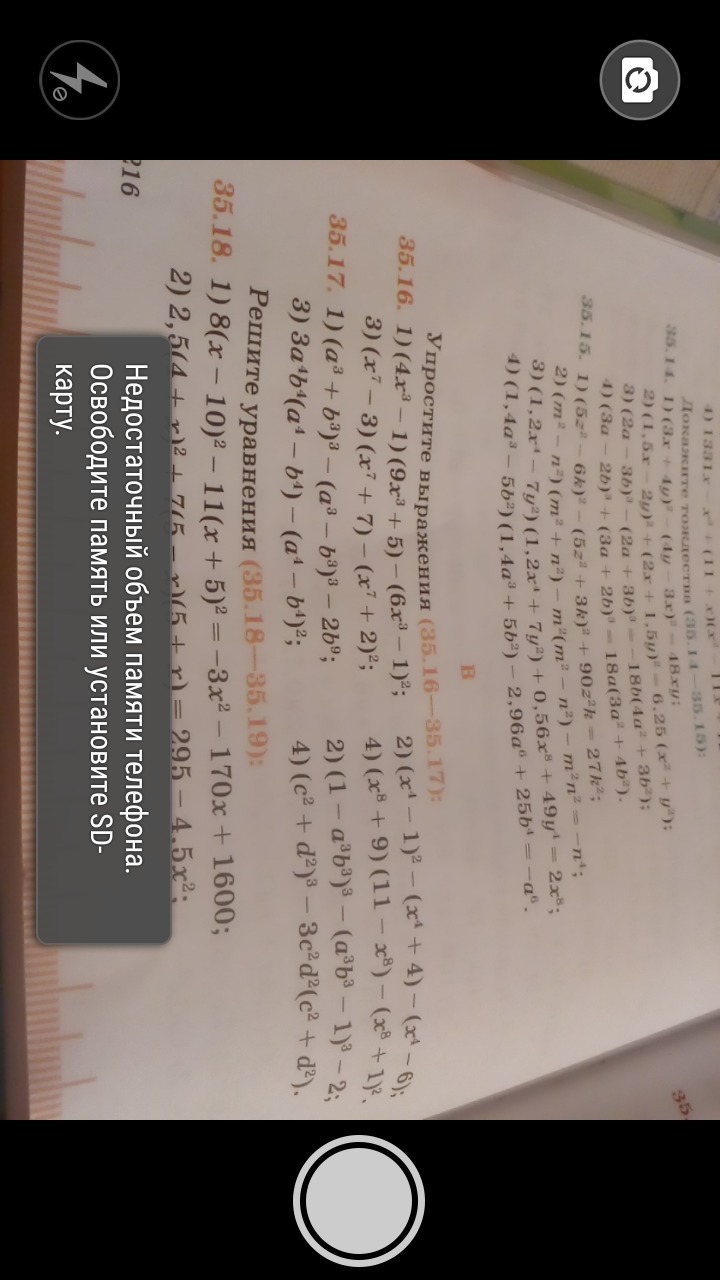 4) 1331x − x⁴ + (11 + x)(x² − 11x
Докажите тождества (35.14—35.15):
35.14. 1) (3x + 4y)² − (4y − 3x)² = 48xy;
2) (1,5x − 2y)² + (2x + 1,5y)² = 6,25 (x² + y²);
3) (2a − 3b)³ − (2a + 3b)³ = −18b(4a² + 3b²);
4) (3a − 2b)³ + (3a + 2b)³ = 18a(3a² + 4b²).
35.15. 1) (5z² − 6k)² − (5z² + 3k)² + 90z²k = 27k²;
2) (m² − n²)(m² + n²) − m²(m² − n²) − m²n² = −n⁴;
3) (1,2x⁴ − 7y²)(1,2x⁴ + 7y²) + 0,56x⁸ + 49y⁴ = 2x⁸;
4) (1,4a³ − 5b²)(1,4a³ + 5b²) − 2,96a⁶ + 25b⁴ = −a⁶.
В
Упростите выражения (35.16—35.17):
35.16. 1) (4x³ − 1)(9x³ + 5) − (6x³ − 1)²; 2) (x⁴ − 1)² − (x⁴ + 4) − (x⁴ − 6);
3) (x⁷ − 3)(x⁷ + 7) − (x⁷ + 2)²; 4) (x⁸ + 9)(11 − x⁸) − (x⁸ + 1)².
35.17. 1) (a³ + b³)³ − (a³ − b³)³ − 2b⁹; 2) (1 − a³b³)³ − (a³b³ − 1)³ − 2;
3) 3a⁴b⁴(a⁴ − b⁴) − (a⁴ − b⁴)²; 4) (c² + d²)³ − 3c²d²(c² + d²).
Решите уравнения (35.18—35.19):
35.18. 1) 8(x − 10)² − 11(x + 5)² = −3x² − 170x + 1600;
2) 2,5(4 + x)² + 7(5 − x)(5 + x) = 295 − 4,5x²;
216
35.
Недостаточный объем памяти телефона.
Освободите память или установите SD-
карту.